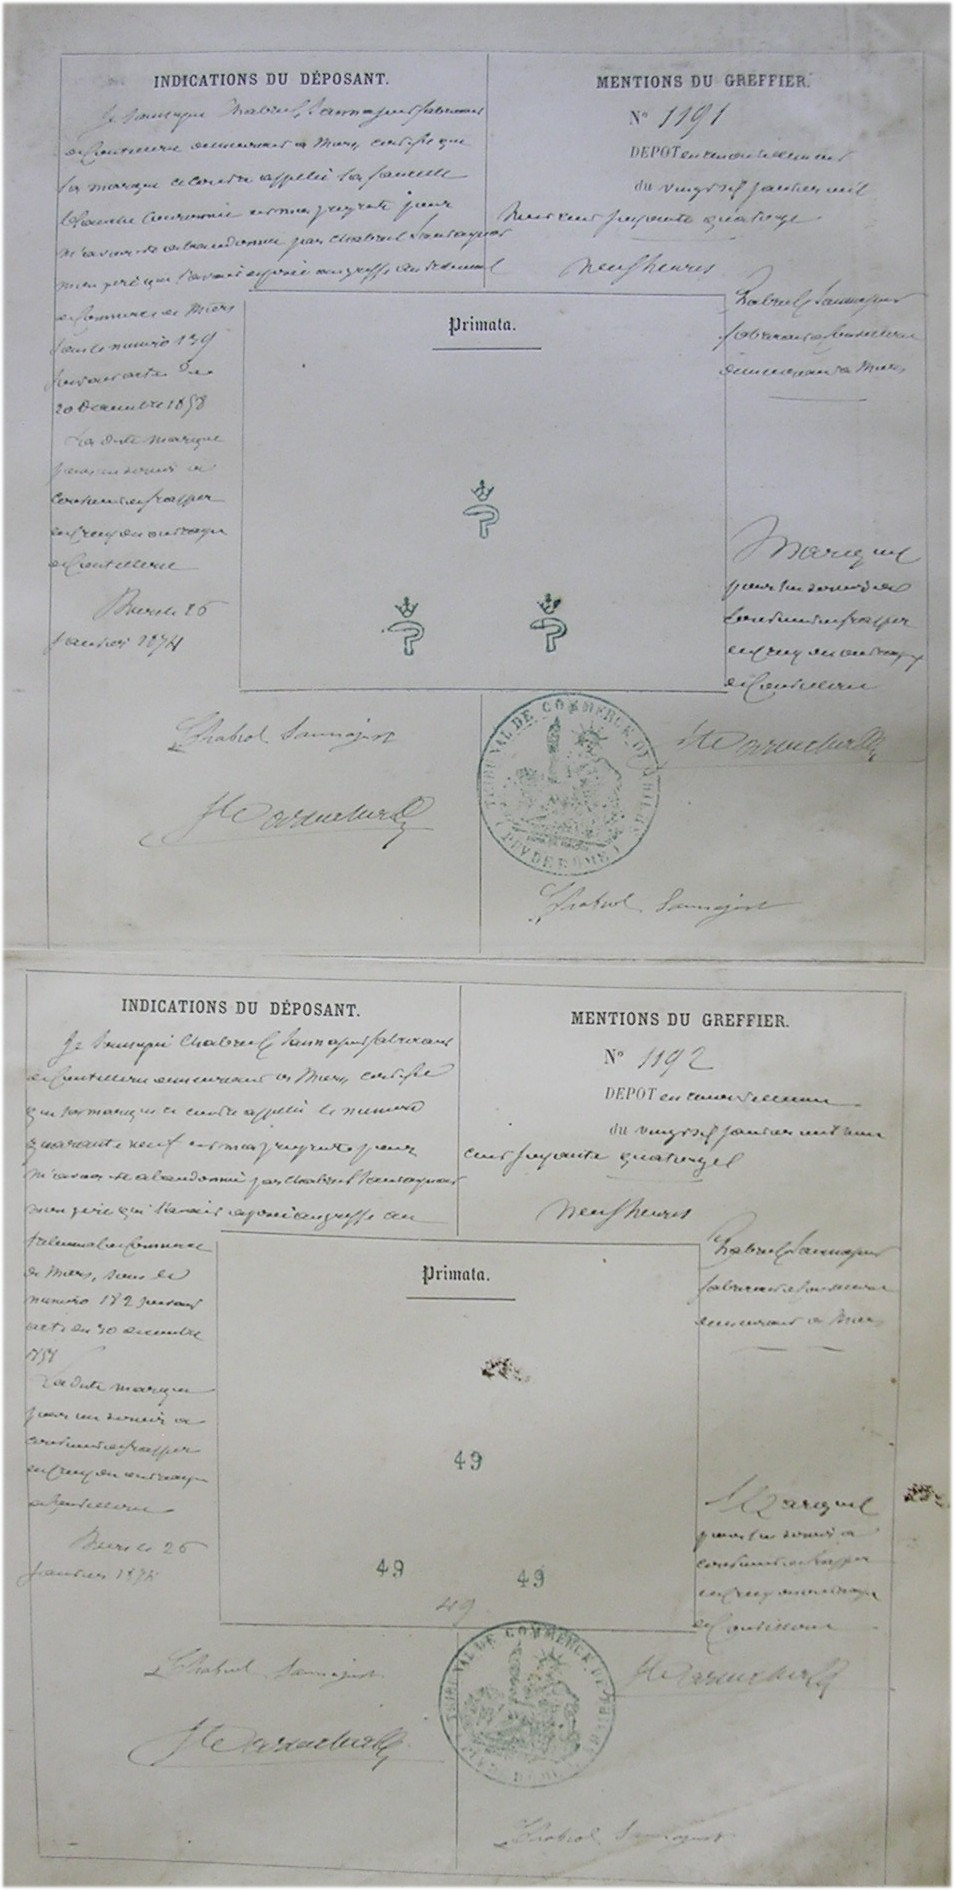 INDICATIONS DU DÉPOSANT.
Je soussigné Chabrol Sannajust fabricant
de Coutellerie demeurant a thiers certifie que
la marque ci contre appellée la faucille
couronnée est ma propriété pour
m'avoir été abandonnée par Chabrol Sannajust
mon père qui l'avait déposée au greffe du tribunal
de Commerce de thiers
sous le numéro 179
suivant acte du
20 Décembre 1858
La dite marque
pour me servir a
continuer de frapper
en creux des ouvrages
de Coutellerie
thiers le 26
Janvier 1874
MENTIONS DU GREFFIER.
No 1191
DEPOT
du vingt six janvier mil
huit cent soixante quatorze
neuf heures
Chabrol Sannajust
fabricant de Coutellerie
demeurant a thiers
Primata.
Marque
pour lui servir a
continuer de frapper
en creux des ouvrages
de Coutellerie
Chabrol Sannajust
TRIBUNAL DE COMMERCE DE THIERS
(PUY DE DÔME)
Chabrol Sannajust
INDICATIONS DU DÉPOSANT.
Je soussigné Chabrol Sannajust fabricant
de Coutellerie demeurant a thiers certifie
que la marque ci contre appellée le numéro
quarante neuf est ma propriété pour
m'avoir été abandonnée par Chabrol Sannajust
mon père qui l'avait déposée au greffe du
tribunal de Commerce
de thiers, sous le
numéro 182 suivant
acte du 20 décembre
1858
La dite marque
pour me servir a
continuer de frapper
en creux des ouvrages
de Coutellerie
thiers le 26
Janvier 1874
MENTIONS DU GREFFIER.
No 1192
DEPOT
du vingt six janvier mil huit
cent soixante quatorze
neuf heures
Chabrol Sannajust
fabricant de Coutellerie
demeurant a thiers
Primata.
49
49 49
49
Marque
pour lui servir a
continuer de frapper
en creux des ouvrages
de Coutellerie
Chabrol Sannajust
TRIBUNAL DE COMMERCE DE THIERS
PUY DE DÔME
Chabrol Sannajust